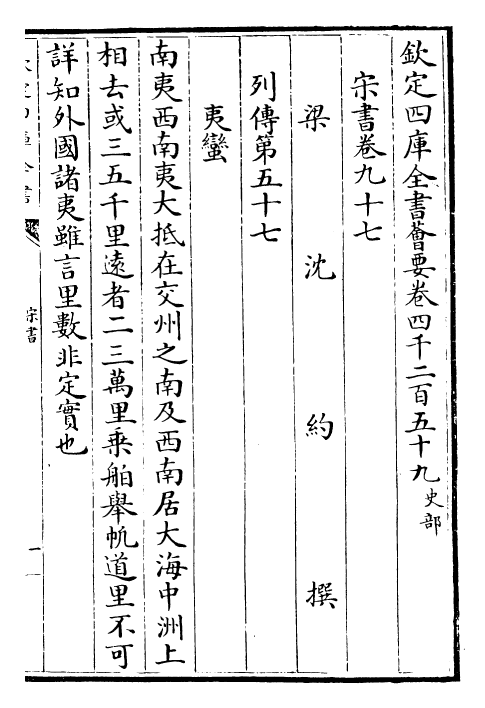 欽定四庫全書薈要卷四千二百五十九史部
宋書卷九十七
梁沈約撰
列傳第五十七
夷蠻
南夷西南夷大抵在交州之南及西南居大海中洲上
相去或三五千里遠者二三萬里乗舶舉帆道里不可
詳知外國諸夷雖言里數非定實也
宋書
一